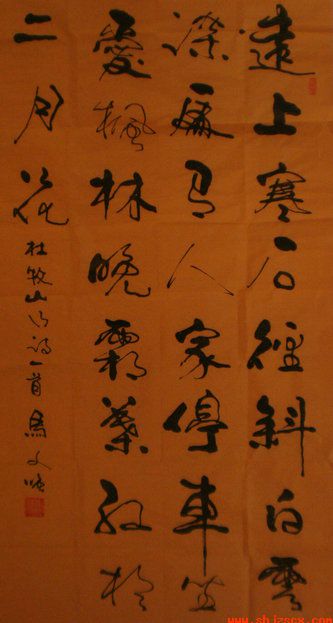 遠上寒石徑斜白雲
深處有人家停車坐
愛楓林晚霜葉紅於
二月花
杜牧山行詩一首馬文